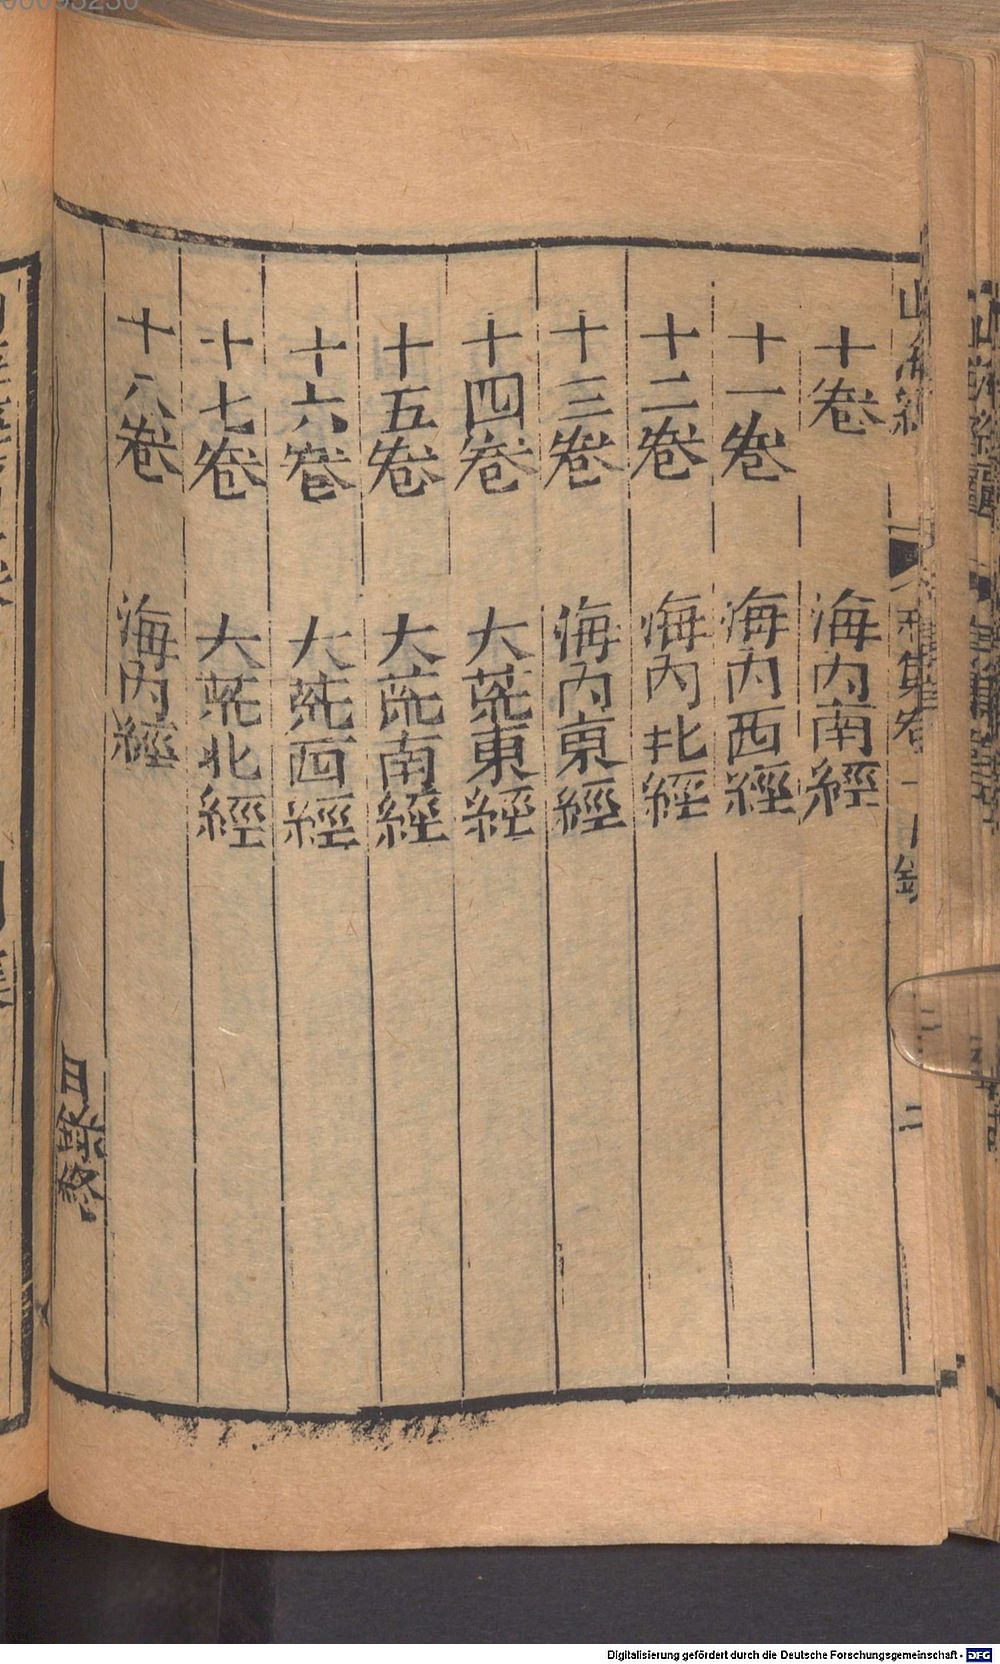 十卷 海內南經
十一卷 海內西經
十二卷 海內北經
十三卷 海內東經
十四卷 大荒東經
十五卷 大荒南經
十六卷 大荒西經
十七卷 大荒北經
十八卷 海內經
目錄終
Digitalisierung gefördert durch die Deutsche Forschungsgemeinschaft - DFG